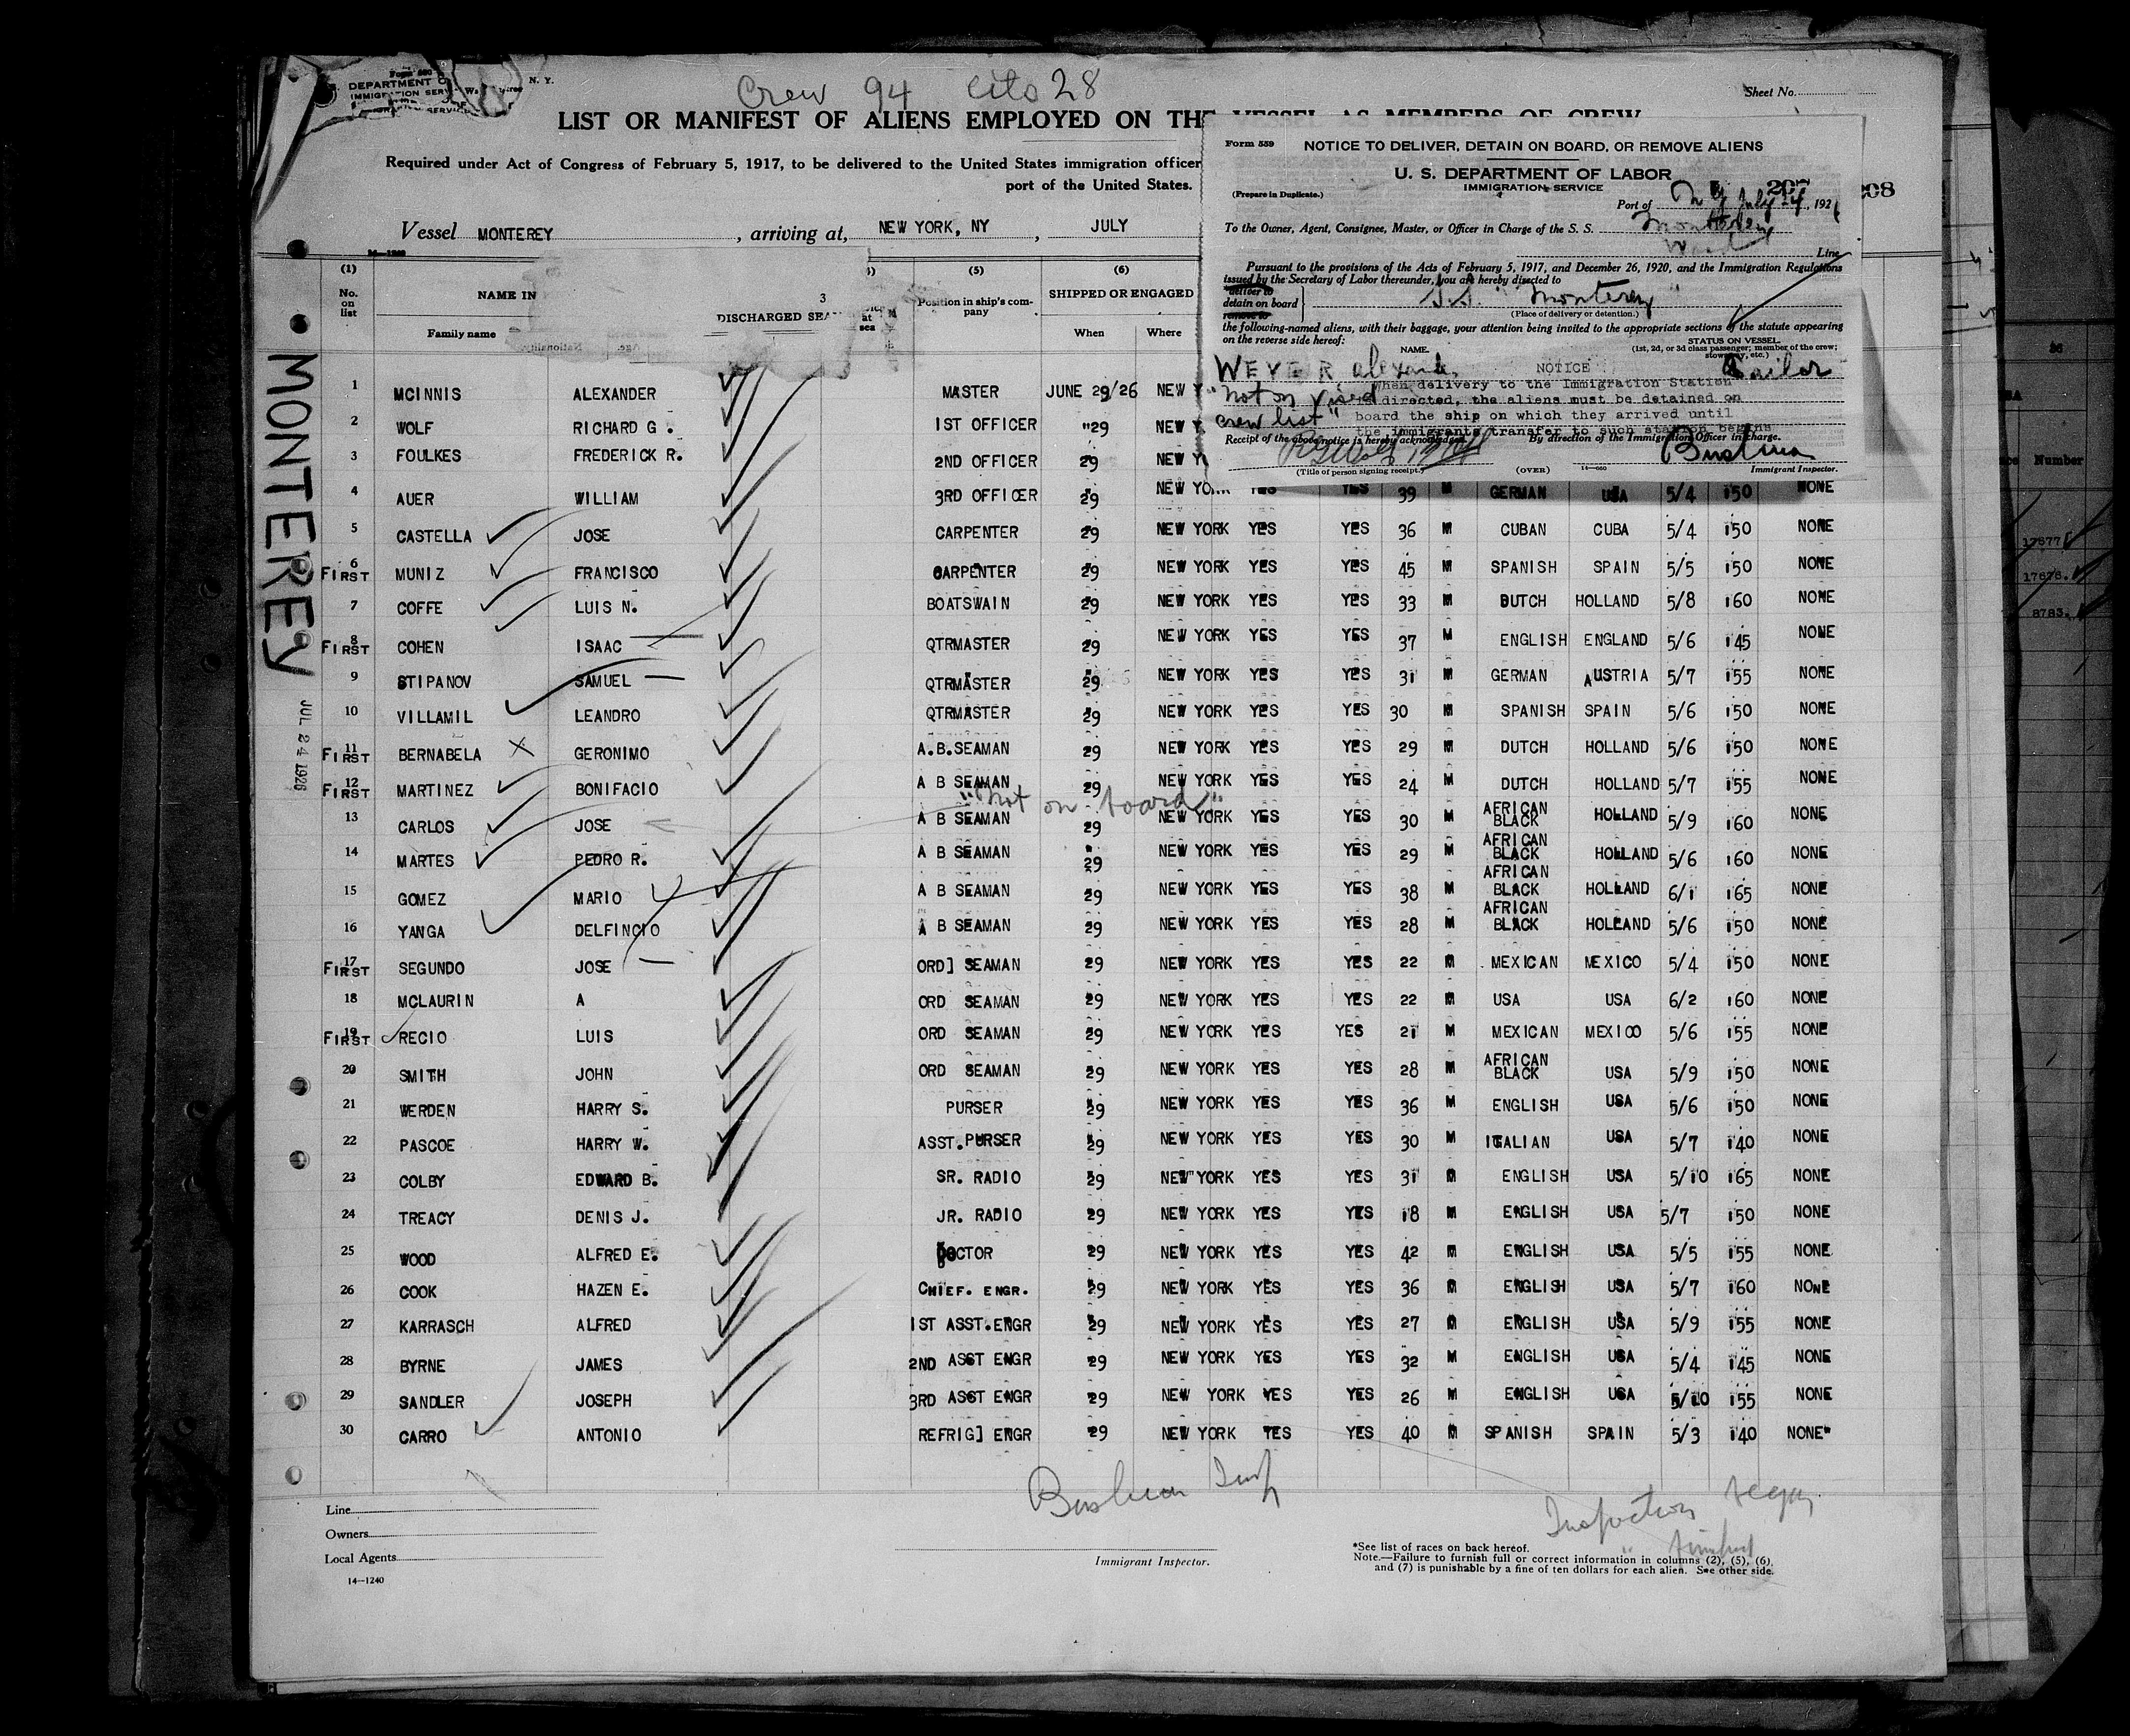 Crew 94 Cits 28
Form 680
DEPARTMENT O
IMMIGRATION SERV
N. Y.
Sheet No.
LIST OR MANIFEST OF ALIENS EMPLOYED ON THE VESSEL AS MEMBERS OF CREW
Required under Act of Congress of February 5, 1917, to be delivered to the United States immigration officer
port of the United States.
Vessel MONTEREY, arriving at, NEW YORK, NY, JULY
208
Form 559
NOTICE TO DELIVER, DETAIN ON BOARD, OR REMOVE ALIENS
U. S. DEPARTMENT OF LABOR
IMMIGRATION SERVICE
(Prepare in Duplicate.)
207
Port of N Y July 24, 1926
To the Owner, Agent, Consignee, Master, or Officer in Charge of the S. S. Monterey
Ward Line
Pursuant to the provisions of the Acts of February 5, 1917, and December 26, 1920, and the Immigration Regulations
issued by the Secretary of Labor thereunder, you are hereby directed to
deliver to
detain on board S.S. "Monterey"
remove to
(Place of delivery or detention.)
the following-named aliens, with their baggage, your attention being invited to the appropriate sections of the statute appearing
on the reverse side hereof:
NAME.
STATUS ON VESSEL
(1st, 2d, or 3d class passenger; member of the crew;
stowaway, etc.)
WEVER Sailor
NOTICE
"not on visaed
crew list"
When delivery to the Immigration Station
directed, the aliens must be detained on
board the ship on which they arrived until
the immigrants transfer to such station begins
Receipt of the above notice is hereby acknowledged.
By direction of the Immigration Officer in charge.
(Title of person signing receipt.)
(OVER)
14—660
Immigrant Inspector.
MONTEREY
JUL 24 1926
14—1240
(1) (5) (6)
No. on list
NAME IN
Family name
3
DISCHARGED SEA
at sea
Position in ship's company
SHIPPED OR ENGAGED
When Where
1 MCINNIS ALEXANDER MASTER JUNE 29/26 NEW Y
2 WOLF RICHARD G. 1ST OFFICER "29 NEW Y
3 FOULKES FREDERICK R. 2ND OFFICER 29 NEW Y
4 AUER WILLIAM 3RD OFFICER 29 NEW YO YES YES 39 M GERMAN USA 5/4 150 NONE
5 CASTELLA JOSE CARPENTER 29 NEW YORK YES YES 36 M CUBAN CUBA 5/4 150 NONE
6 FIRST MUNIZ FRANCISCO CARPENTER 29 NEW YORK YES YES 45 M SPANISH SPAIN 5/5 150 NONE
7 COFFE LUIS N. BOATSWAIN 29 NEW YORK YES YES 33 M DUTCH HOLLAND 5/8 160 NONE
8 FIRST COHEN ISAAC QTRMASTER 29 NEW YORK YES YES 37 M ENGLISH ENGLAND 5/6 145 NONE
9 STIPANOV SAMUEL QTRMASTER 29 NEW YORK YES YES 31 M GERMAN AUSTRIA 5/7 155 NONE
10 VILLAMIL LEANDRO QTRMASTER 29 NEW YORK YES YES 30 M SPANISH SPAIN 5/6 150 NONE
11 FIRST BERNABELA GERONIMO A.B.SEAMAN 29 NEW YORK YES YES 29 M DUTCH HOLLAND 5/6 150 NONE
12 FIRST MARTINEZ BONIFACIO A B SEAMAN 29 NEW YORK YES YES 24 M DUTCH HOLLAND 5/7 155 NONE
"not on board"
13 CARLOS JOSE A B SEAMAN 29 NEW YORK YES YES 30 M AFRICAN BLACK HOLLAND 5/9 160 NONE
14 MARTES PEDRO R. A B SEAMAN 29 NEW YORK YES YES 29 M AFRICAN BLACK HOLLAND 5/6 160 NONE
15 GOMEZ MARIO A B SEAMAN 29 NEW YORK YES YES 38 M AFRICAN BLACK HOLLAND 6/1 165 NONE
16 YANGA DELFINCIO A B SEAMAN 29 NEW YORK YES YES 28 M AFRICAN BLACK HOLLAND 5/6 150 NONE
17 FIRST SEGUNDO JOSE ORD] SEAMAN 29 NEW YORK YES YES 22 M MEXICAN MEXICO 5/4 150 NONE
18 MCLAURIN A ORD SEAMAN 29 NEW YORK YES YES 22 M USA USA 6/2 160 NONE
19 FIRST RECIO LUIS ORD SEAMAN 29 NEW YORK YES YES 21 M MEXICAN MEXICO 5/6 155 NONE
20 SMITH JOHN ORD SEAMAN 29 NEW YORK YES YES 28 M AFRICAN BLACK USA 5/9 150 NONE
21 WERDEN HARRY S. PURSER 29 NEW YORK YES YES 36 M ENGLISH USA 5/6 150 NONE
22 PASCOE HARRY W. ASST.PURSER 29 NEW YORK YES YES 30 M ITALIAN USA 5/7 140 NONE
23 COLBY EDWARD B. SR. RADIO 29 NEW YORK YES YES 31 M ENGLISH USA 5/10 165 NONE
24 TREACY DENIS J. JR. RADIO 29 NEW YORK YES YES 18 M ENGLISH USA 5/7 150 NONE
25 WOOD ALFRED E. DOCTOR 29 NEW YORK YES YES 42 M ENGLISH USA 5/5 155 NONE
26 COOK HAZEN E. CHIEF. ENGR. 29 NEW YORK YES YES 36 M ENGLISH USA 5/7 160 NONE
27 KARRASCH ALFRED 1ST ASST.ENGR 29 NEW YORK YES YES 27 M ENGLISH USA 5/9 155 NONE
28 BYRNE JAMES 2ND ASST ENGR 29 NEW YORK YES YES 32 M ENGLISH USA 5/4 145 NONE
29 SANDLER JOSEPH 3RD ASST ENGR 29 NEW YORK YES YES 26 M ENGLISH USA 5/10 155 NONE
30 CARRO ANTONIO REFRIG] ENGR 29 NEW YORK YES YES 40 M SPANISH SPAIN 5/3 140 NONE
Number
17677
17676.
8783.
Line
Owners
Local Agents
14—1240
Immigrant Inspector.
Inspection began
" finished
*See list of races on back hereof.
Note.—Failure to furnish full or correct information in columns (2), (5), (6),
and (7) is punishable by a fine of ten dollars for each alien. See other side.